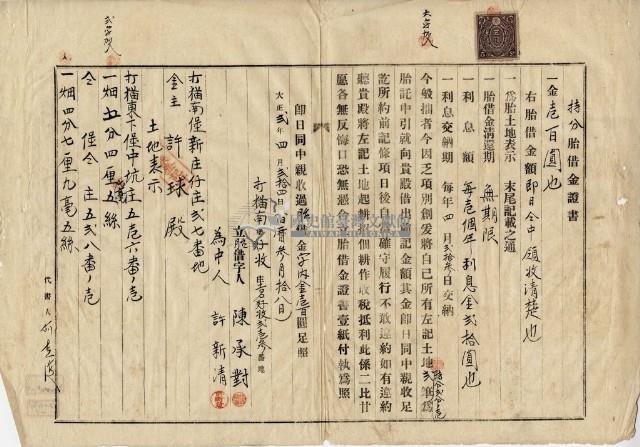 持分胎借金證書
一金壱百圓也
右胎借金額即日全中領收清楚也
一為胎土地表示 末尾記載之通
一胎借金清還期 無期限
一利息額 每壱個年利息金弍拾圓也
一利息交納期 每年四月弍拾参日交納
今般拙者今因乏項別創爰將自己所有左記土地弍筆為
胎託中引就向貴殿借出記金額其金即日同中親收足
訖所約前記條項日後自應確守履行不敢違約如有違約
聽貴殿將左記土地起耕招佃耕作收稅抵利此係二比甘
愿各無反悔口恐無憑立胎借金證書壹紙付執為照
即日同中親收過胎借金字內金壱百圓足照
大正弍年四月弍拾四日
打猫南
立胎借字人 陳承對
為中人 許新清
打猫南堡新庄仔庄弍七番地
金主 許球殿
土地表示
打猫東下堡中坑庄五壱六番ノ壱
一畑五分四厘五絲
仝堡仝庄五弍八番ノ壱
一畑四分七厘九毫五絲
代書人